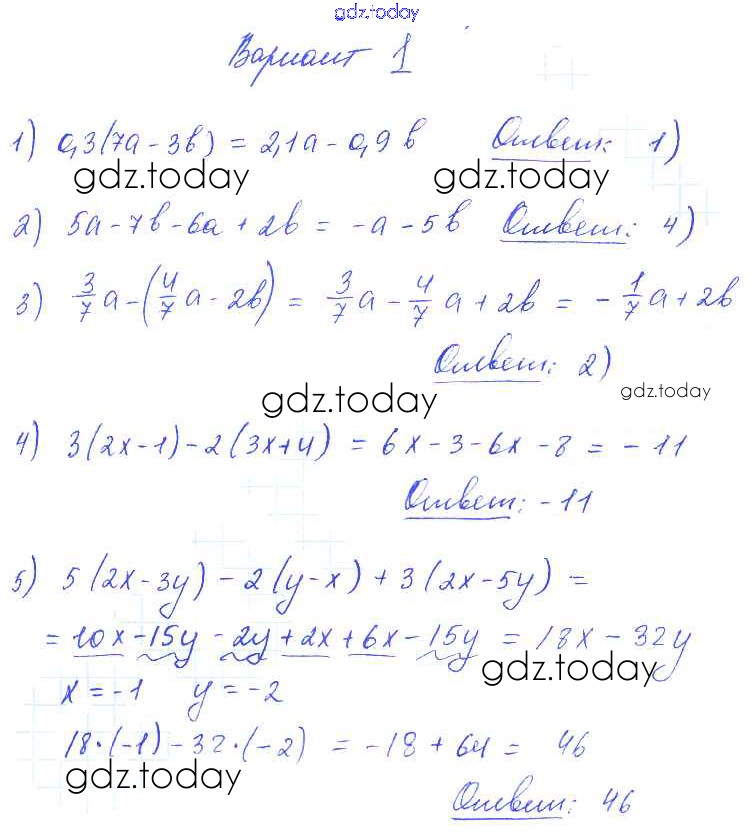 gdz.today
Вариант 1
1) 0,3(7a - 3b) = 2,1a - 0,9b Ответ: 1)
gdz.today gdz.today
2) 5a - 7b - 6a + 2b = -a - 5b Ответ: 4)
3) 3/7 a - (4/7 a - 2b) = 3/7 a - 4/7 a + 2b = - 1/7 a + 2b
Ответ: 2)
gdz.today gdz.today
4) 3(2x - 1) - 2(3x + 4) = 6x - 3 - 6x - 8 = - 11
Ответ: -11
5) 5(2x - 3y) - 2(y - x) + 3(2x - 5y) =
= 10x - 15y - 2y + 2x + 6x - 15y = 18x - 32y
gdz.today
x = -1 y = -2
18·(-1) - 32·(-2) = -18 + 64 = 46
gdz.today
Ответ: 46